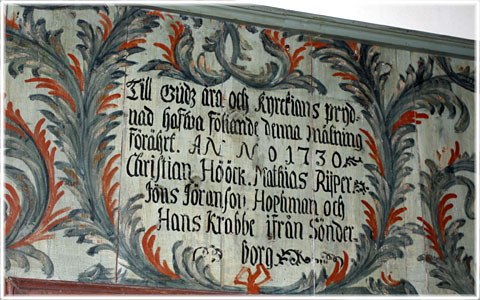 Till Gudz ära och Kyrckians pryd-
nad hafva föliande denna målning
förährt. ANNO 1730.
Christian Hööck. Mathias Rijper.
Jöns Jöranson Hophman och
Hans Krabbe ifrån Sönder-
borg.